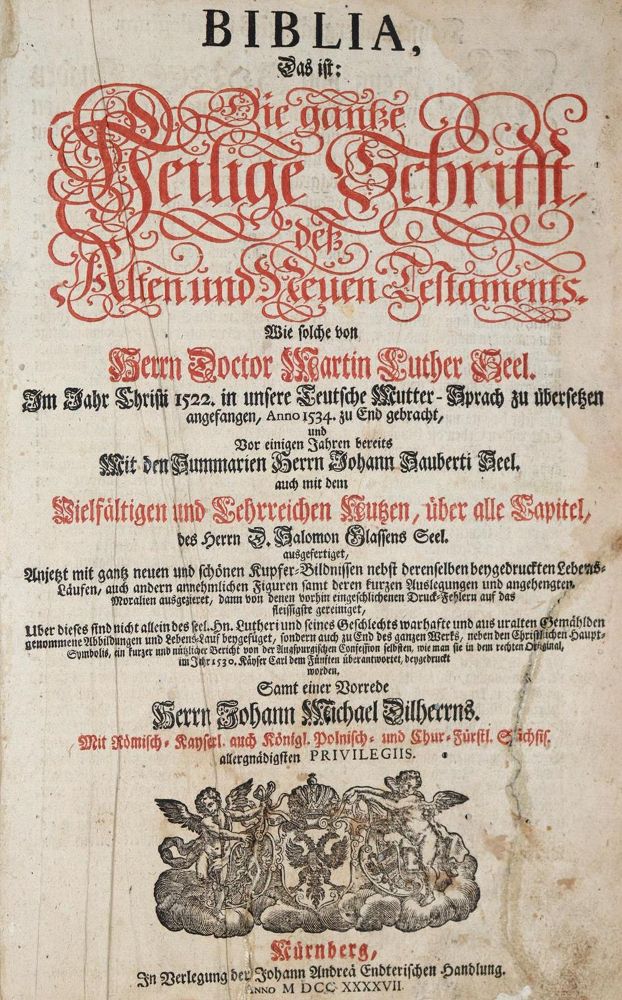 BIBLIA,
Das ist:
Die gantze
Heilige Schrifft,
deß
Alten und Neuen Testaments.
Wie solche von
Herrn Doctor Martin Luther Seel.
Im Jahr Christi 1522. in unsere Teutsche Mutter-Sprach zu übersetzen
angefangen, Anno 1534. zu End gebracht,
und
Vor einigen Jahren bereits
Mit den Summarien Herrn Johann Sauberti Seel.
auch mit dem
Vielfältigen und Lehrreichen Nutzen, über alle Capitel,
des Herrn D. Salomon Glassens Seel.
ausgefertiget,
Anjetzt mit gantz neuen und schönen Kupfer-Bildnissen nebst derenselben beygedruckten Lebens-
Läufen, auch andern annehmlichen Figuren samt deren kurzen Auslegungen und angehengten
Moralien ausgezieret, dann von denen vorhin eingeschlichenen Druck-Fehlern auf das
fleissigste gereiniget,
Uber dieses sind nicht allein des seel. Hn. Lutheri und seines Geschlechts warhafte und aus uralten Gemählden
genommene Abbildungen und Lebens-Lauf beygefüget, sondern auch zu End des ganzen Werks, neben den Christlichen Haupt-
Symbolis, ein kurzer und nützlicher Bericht von der Augspurgischen Confession selbsten, wie man sie in dem rechten Original,
im Jahr 1530. Käyser Carl dem Fünften überantwortet, beygedruckt
worden,
Samt einer Vorrede
Herrn Johann Michael Dilherrns.
Mit Römisch-Kayserl. auch Königl. Polnisch- und Chur-Fürstl. Sächsis.
allergnädigsten PRIVILEGIIS.
Nürnberg,
In Verlegung der Johann Andreä Endterischen Handlung.
ANNO M DCC XXXXVII.